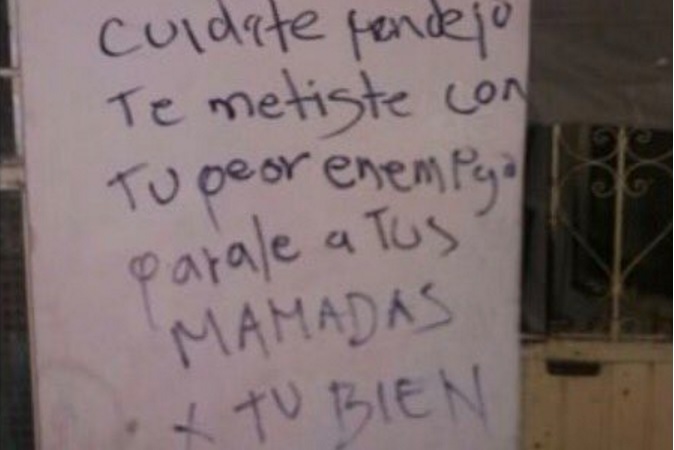 cuidate pendejo
Te metiste con
TU peor enemiga
parale a TUS
MAMADAS
X TU BIEN